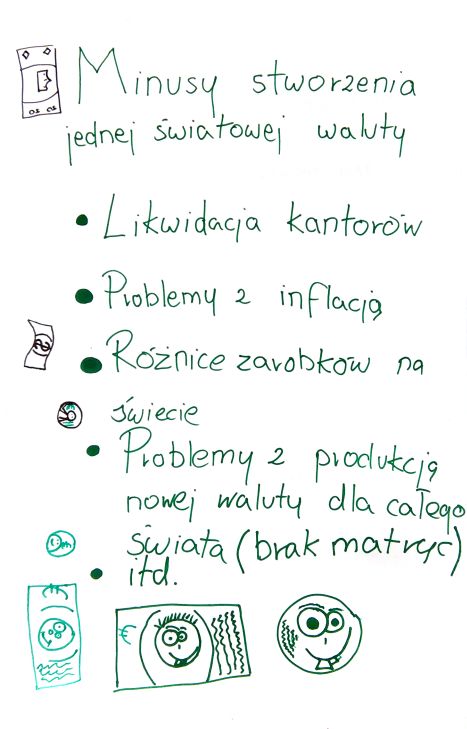 Minusy stworzenia
jednej światowej waluty
• Likwidacja kantorów
• Problemy z inflacją
• Różnice zarobków na
świecie
• Problemy z produkcją
nowej waluty dla całego
świata (brak matryc)
• itd.